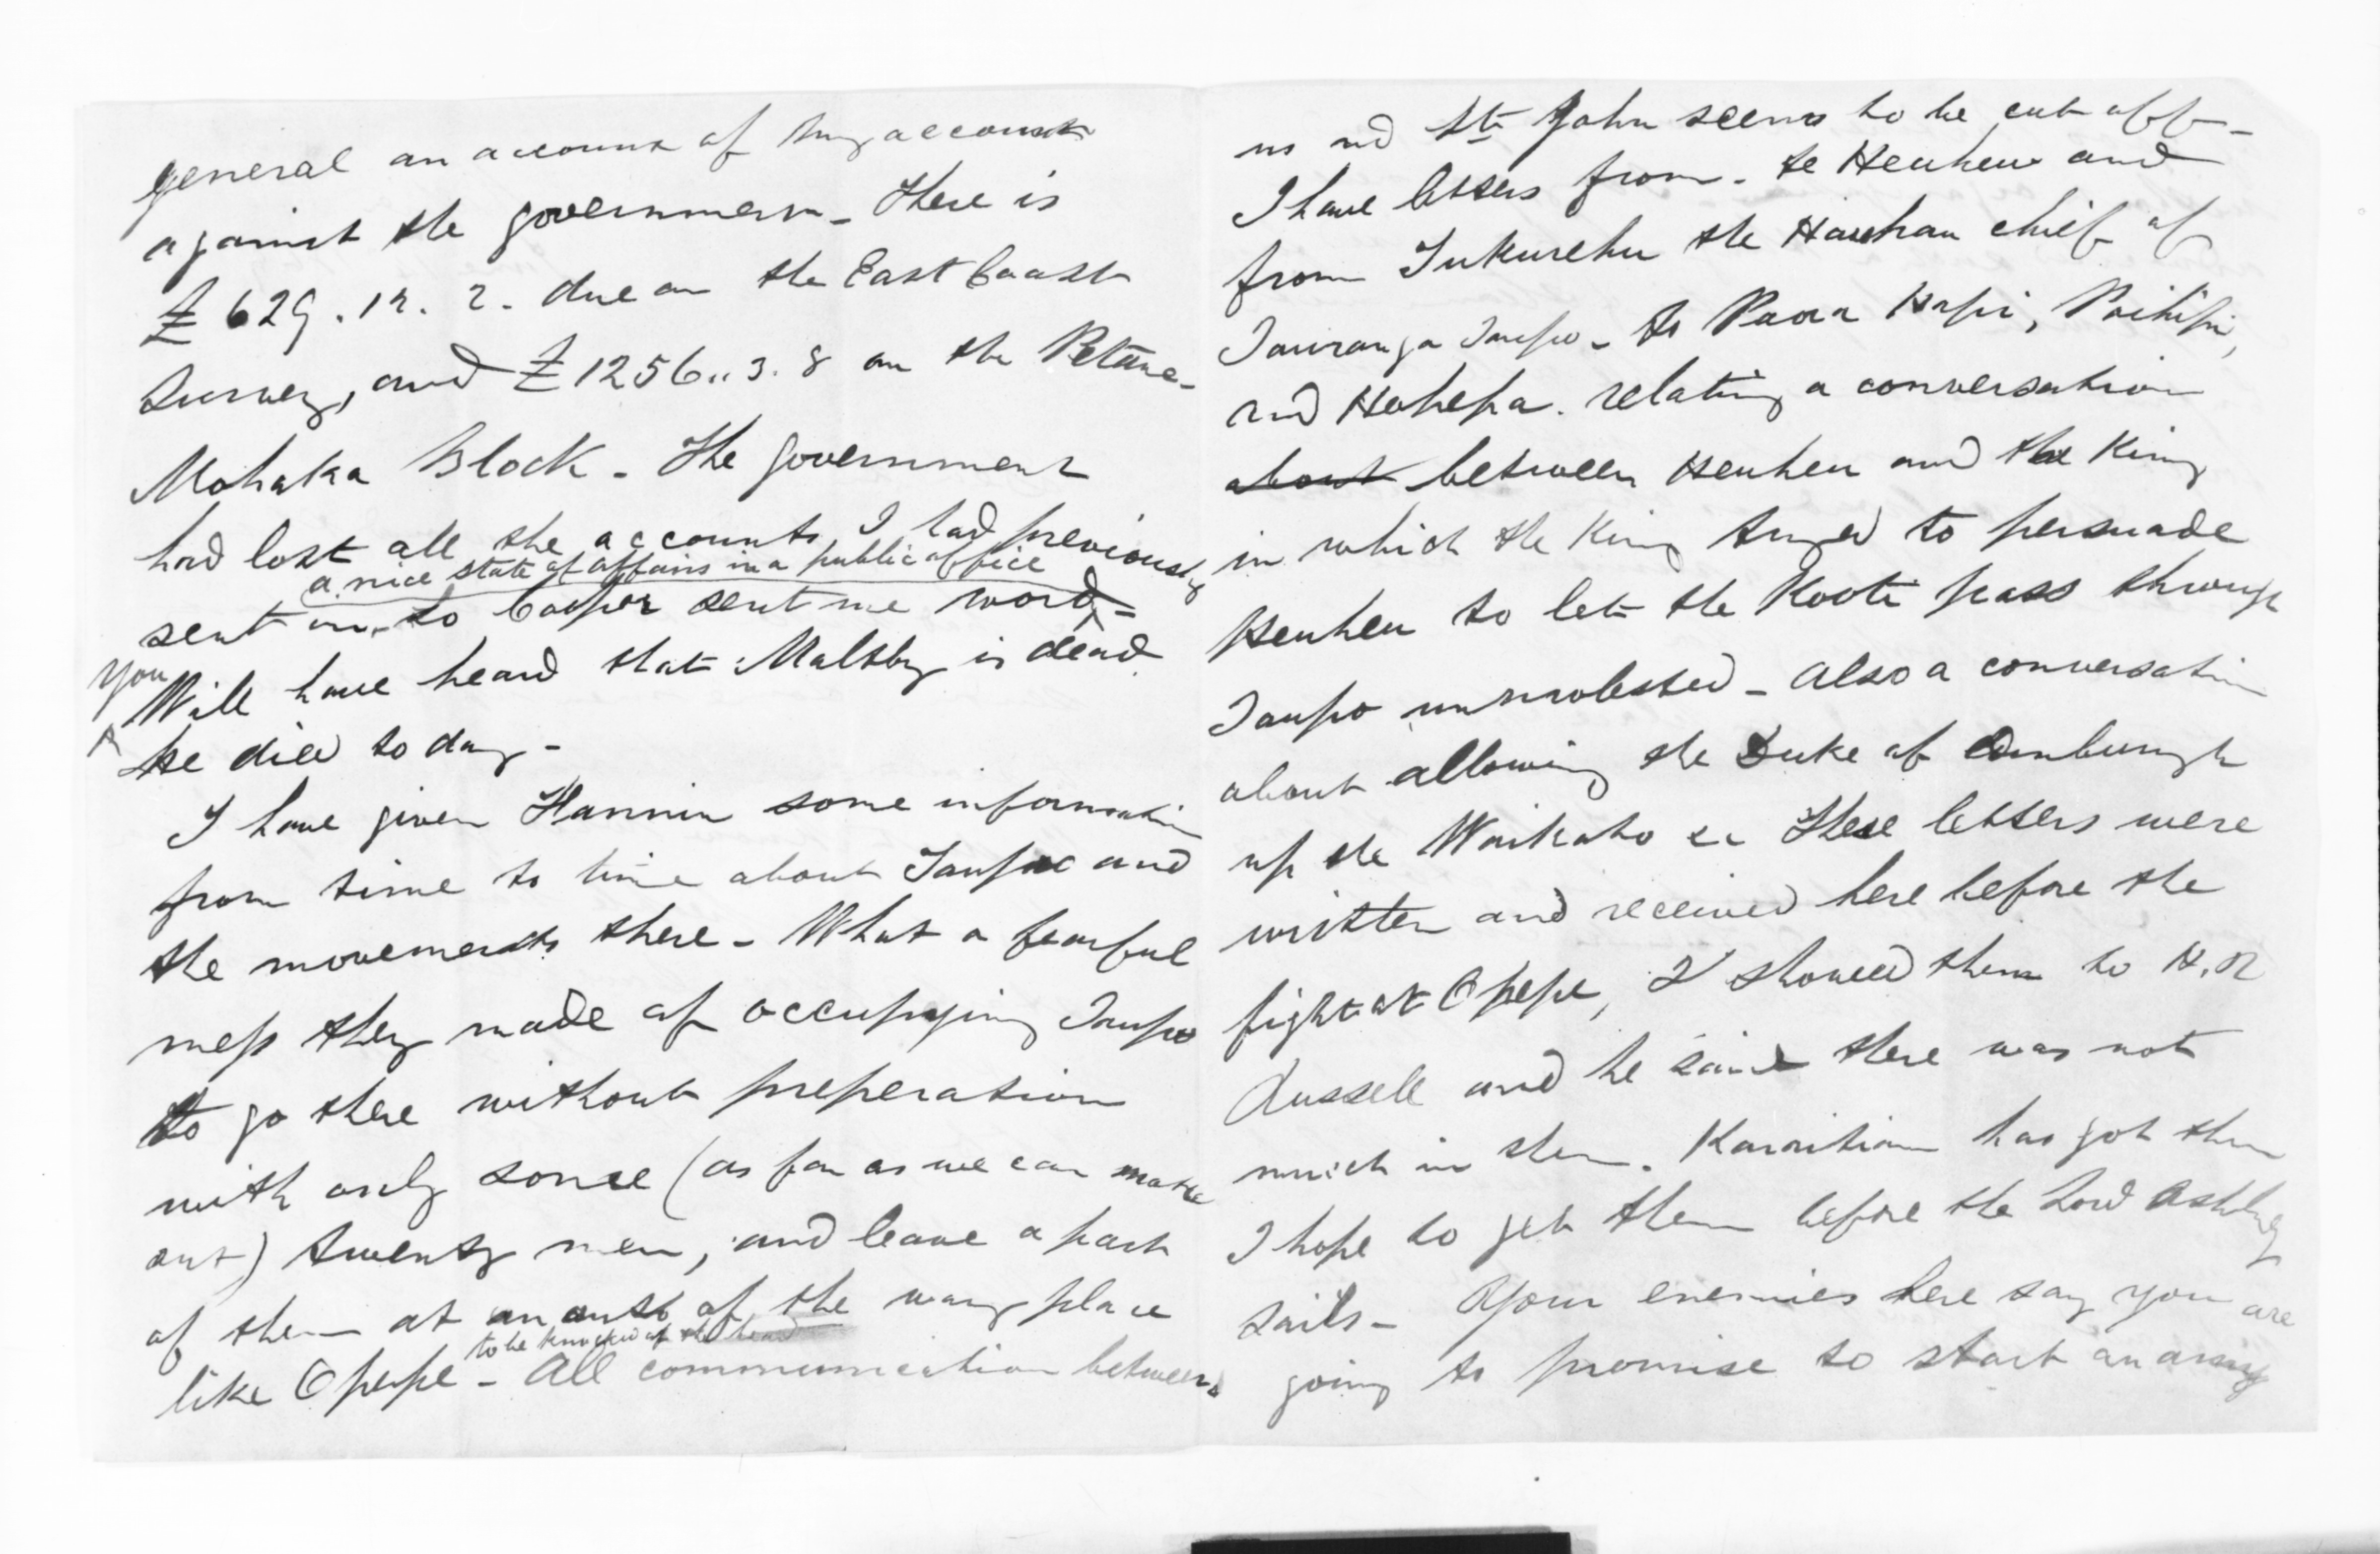 general an account of my accounts
against the government - There is
£629.12.2. due on the East Coast
Survey, and £1256..3.8 on the Petane-
Mohaka Block - The government
had lost all the accounts I had previously
a nice state of affairs in a public office
sent in, so Cooper sent me word -
You
Will have heard that Maltby is dead
he died to day -
I have given Hannin some information
from time to time about Taupo and
the movements there - What a fearful
mess they made of occupying Taupo
to go there without preperation
with only some (as far as we can make
out) twenty men, and leave a part
of them at an out of the way place
to be knocked on the head
like Opepe - All communication between
us and St John seems to be cut off -
I have letters from - te Heuheu and
from Tukurehu the Hauhau chief of
Tauranga Taupo - to Paora Hapi, Poihipi,
and Hohepa. relating a conversation
about between Heuheu and the King
in which the King tryed to persuade
Heuheu to let the Kooti pass through
Taupo unmolested - Also a conversation
about allowing the Duke of Edinburgh
up the Waikato &c These letters were
written and received here before the
fight at Opepe, I showed them to H.R
Russell and he said there was not
much in them. Karaitiana has got them
I hope to get them before the Lord Ashley
sails - Your enemies here say you are
going to promise to start an army